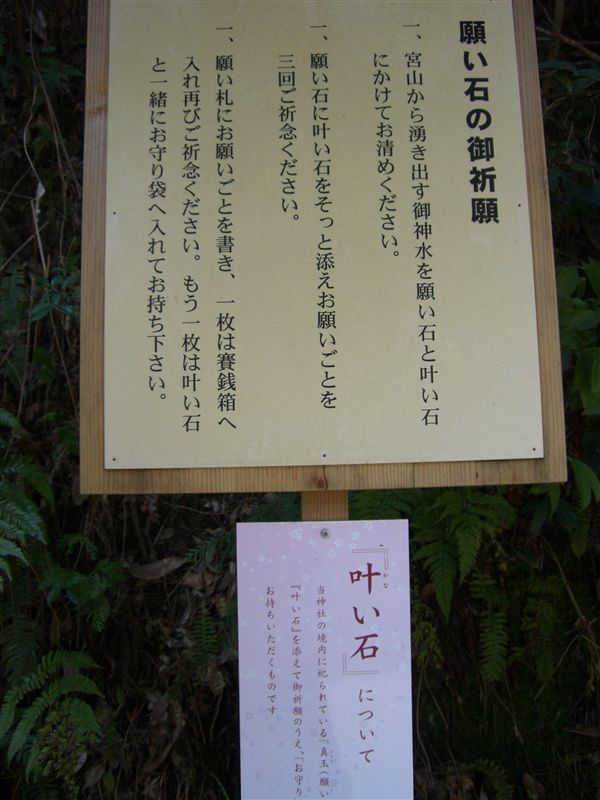 願い石の御祈願
一、宮山から湧き出す御神水を願い石と叶い石
にかけてお清めください。
一、願い石に叶い石をそっと添えお願いごとを
三回ご祈念ください。
一、願い札にお願いごとを書き、一枚は賽銭箱へ
入れ再びご祈念ください。もう一枚は叶い石
と一緒にお守り袋へ入れてお持ち下さい。
『叶い石』について
かな
当神社の境内に祀られている「真玉（願い
『叶い石』を添えて御祈願のうえ、「お守り
お持ちいただくものです